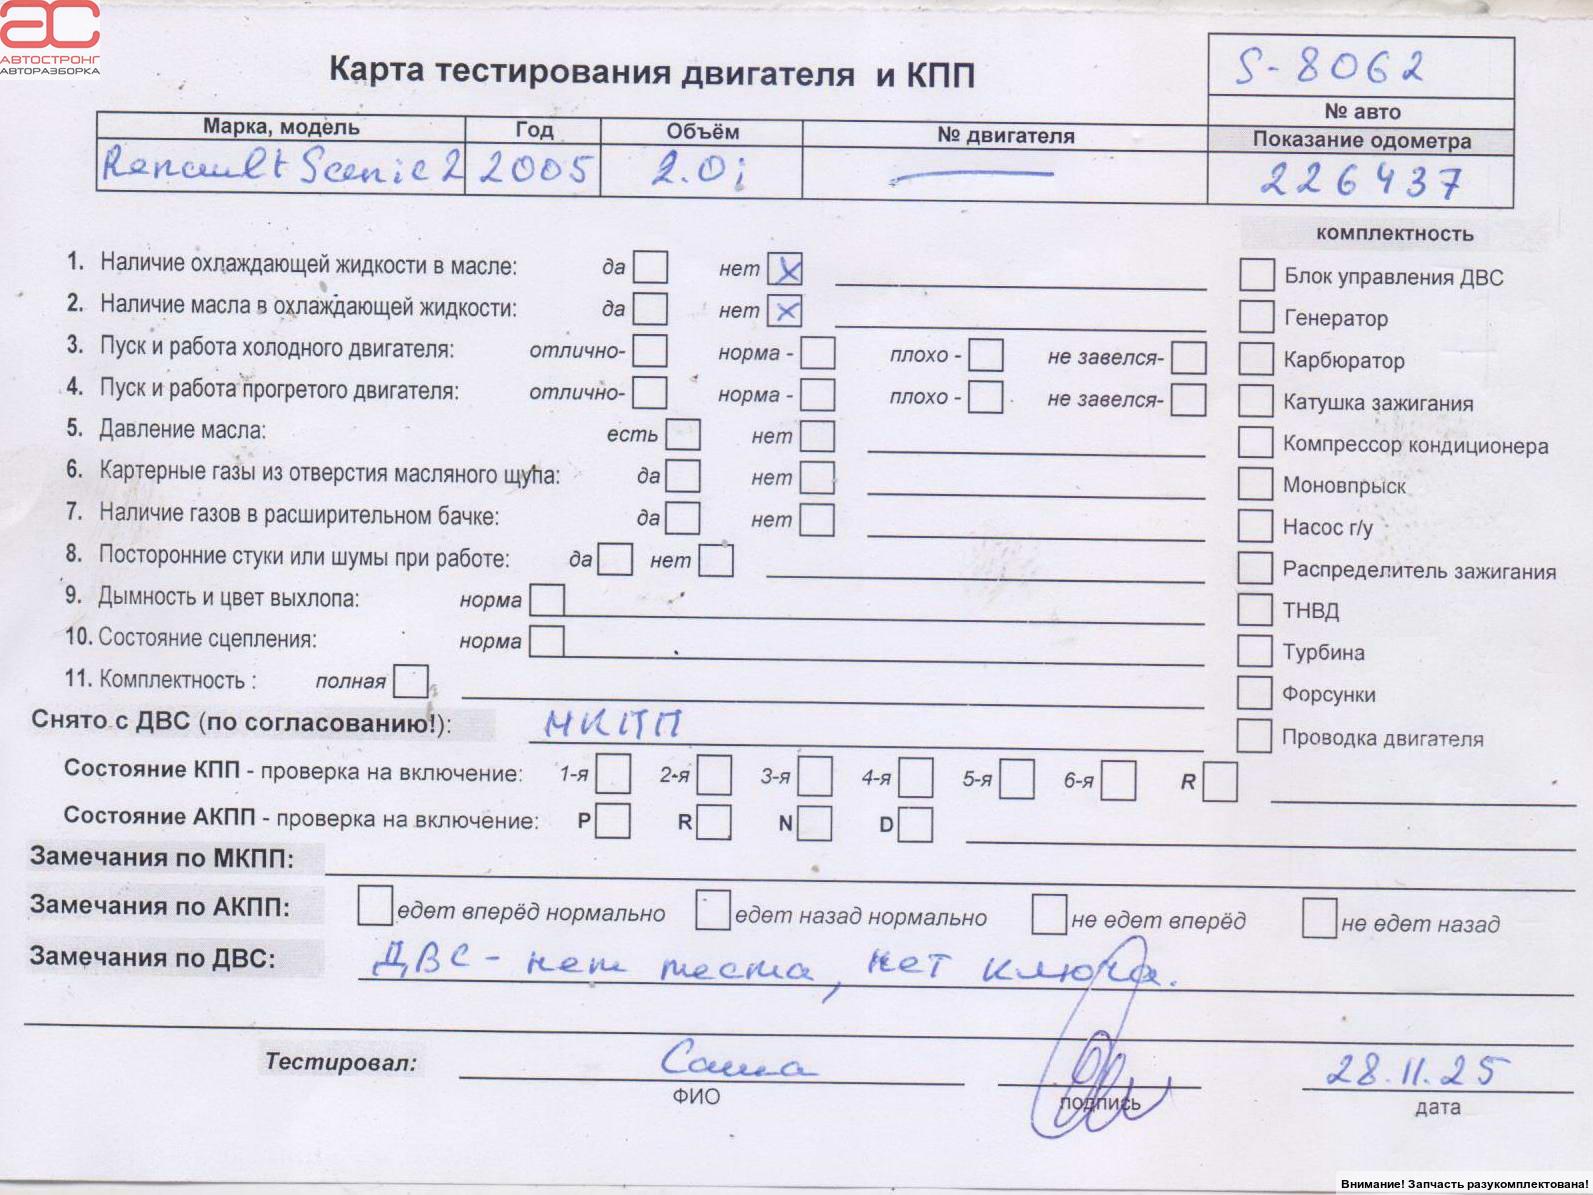 АС
АВТОСТРОНГ
АВТОРАЗБОРКА
Карта тестирования двигателя и КПП
S-8062
№ авто
Марка, модель Год Объём № двигателя Показание одометра
Renault Scenic 2 2005 2.0i — 226437
комплектность
1. Наличие охлаждающей жидкости в масле: да нет X
Блок управления ДВС
2. Наличие масла в охлаждающей жидкости: да нет X
Генератор
3. Пуск и работа холодного двигателя: отлично- норма - плохо - не завелся-
Карбюратор
4. Пуск и работа прогретого двигателя: отлично- норма - плохо - не завелся-
Катушка зажигания
5. Давление масла: есть нет
Компрессор кондиционера
6. Картерные газы из отверстия масляного щупа: да нет
Моновпрыск
7. Наличие газов в расширительном бачке: да нет
Насос г/у
8. Посторонние стуки или шумы при работе: да нет
Распределитель зажигания
9. Дымность и цвет выхлопа: норма
ТНВД
10. Состояние сцепления: норма
Турбина
11. Комплектность : полная
Форсунки
Снято с ДВС (по согласованию!): МКПП
Проводка двигателя
Состояние КПП - проверка на включение: 1-я 2-я 3-я 4-я 5-я 6-я R
Состояние АКПП - проверка на включение: P R N D
Замечания по МКПП:
Замечания по АКПП: едет вперёд нормально едет назад нормально не едет вперёд не едет назад
Замечания по ДВС: ДВС - нет теста, нет ключа.
Тестировал: Саша 28.11.25
ФИО подпись дата
Внимание! Запчасть разукомплектована!